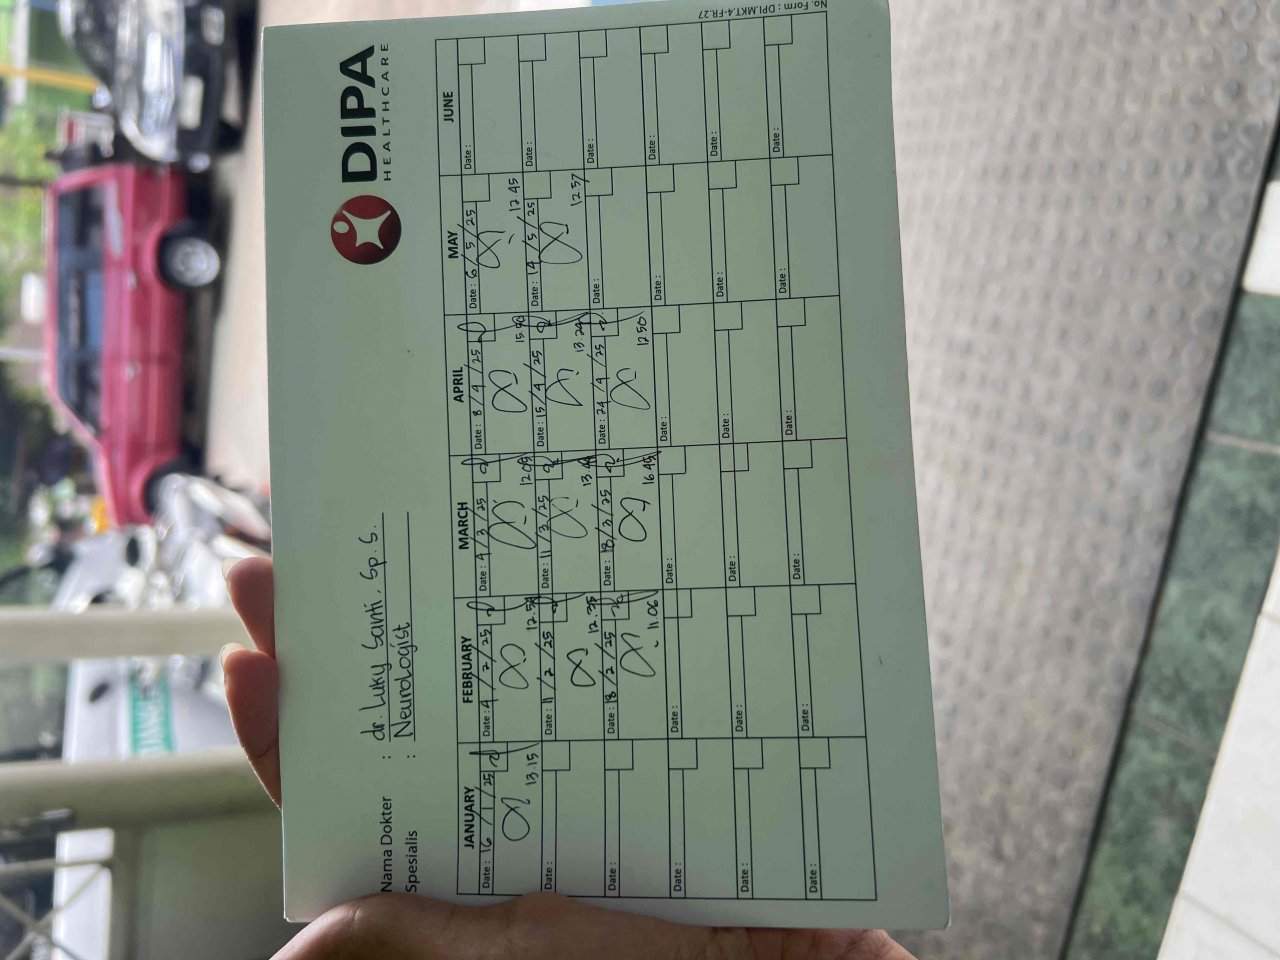 DIPA
HEALTHCARE
Nama Dokter : dr. Luky Santi, Sp.S.
Spesialis : Neurologist
JANUARY FEBRUARY MARCH APRIL MAY JUNE
Date: 16/1/25 Date: 4/2/25 Date: 4/3/25 Date: 8/4/25 Date: 6/5/25 Date:
13.15 12.09 12.45
Date: Date: 11/2/25 Date: 11/3/25 Date: 15/4/25 Date: 14/5/25 Date:
12.35 13.29 12.57
Date: Date: 18/2/25 Date: 18/3/25 Date: 24/4/25 Date: Date:
11.06 16.45 12.50
Date: Date: Date: Date: Date: Date:
Date: Date: Date: Date: Date: Date:
Date: Date: Date: Date: Date: Date:
No. Form : DPI.MKT-4-FR.27